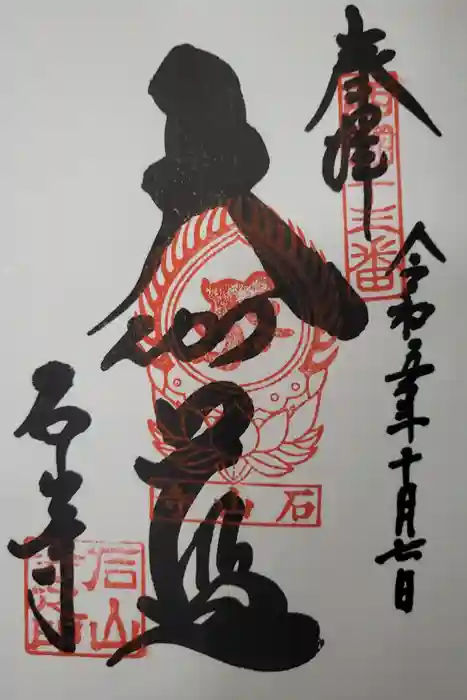 奉拝
西国十三番
令和五年十月七日
大伽藍
石山寺
石山寺